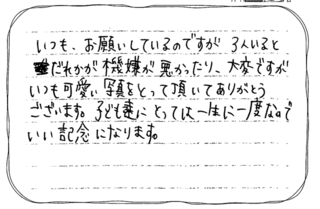 いつも、お願いしているのですが 3人いると
だれかが機嫌が悪かったり、大変ですが
いつも可愛い写真をとって頂いてありがとう
ございます。子ども達にとっては一生に一度なので
いい記念になります。